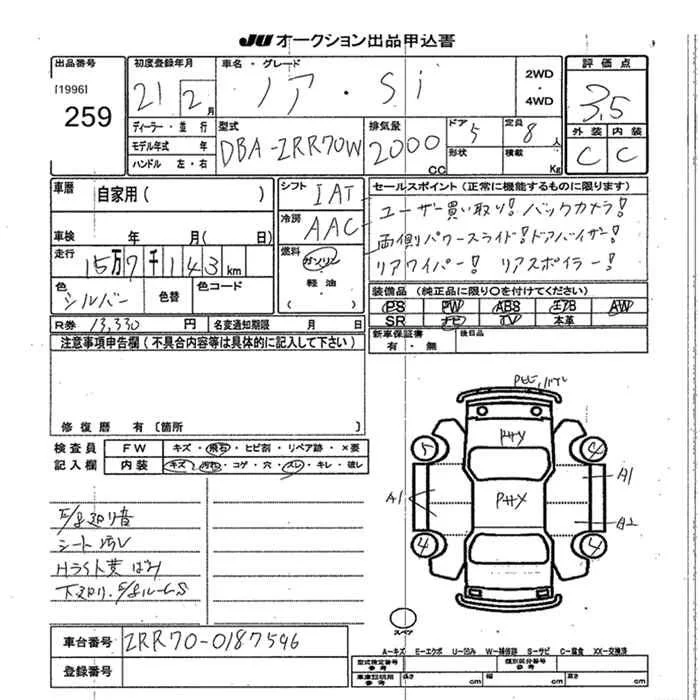 JU オークション出品申込書
出品番号
[1996]
259
初度登録年月
21 2月
車名・グレード
ノア・Si
2WD
・
4WD
評価点
3.5
外装 内装
C C
ディーラー・並行
モデル年式 年
ハンドル 左・右
型式
DBA-ZRR70W
排気量
2000
CC
ドア 5
形状
定員 8人
積載 Kg
車歴 自家用( )
シフト IAT
冷房 AAC
燃料
ガソリン
・
軽油
( )
セールスポイント(正常に機能するものに限ります)
ユーザー買い取り! バックカメラ!
両側パワースライド!ドアバイザー!
リアワイパー! リアスポイラー!
車検 年 月( 日)
走行
15万7千143km
色 シルバー
色替
色コード
装備品(純正品に限り○を付けてください)
PS PW ABS エアB AW
SR ナビ TV 本革
R券 13,330円
名変通知期限 月 日
新車保証書
有・無
後日品
注意事項申告欄(不具合内容等は具体的に記入して下さい)
修復歴 有〔箇所 〕
検査員
記入欄
FW キズ・飛石・ヒビ割・リペア跡・×要
内装 キズ・汚れ・コゲ・穴・スレ・キレ・破レ
シート汚レ
5
4
4
4
A1
A1
A2
スペア
A-キズ E-エクボ U-凹み W-補修跡 S-サビ C-腐食 XX-交換済
車台番号 ZRR70-0187546
登録番号
型式指定番号
参考
類別区分番号
参考
車庫証明用
参考
長さ cm
幅 cm
高さ cm